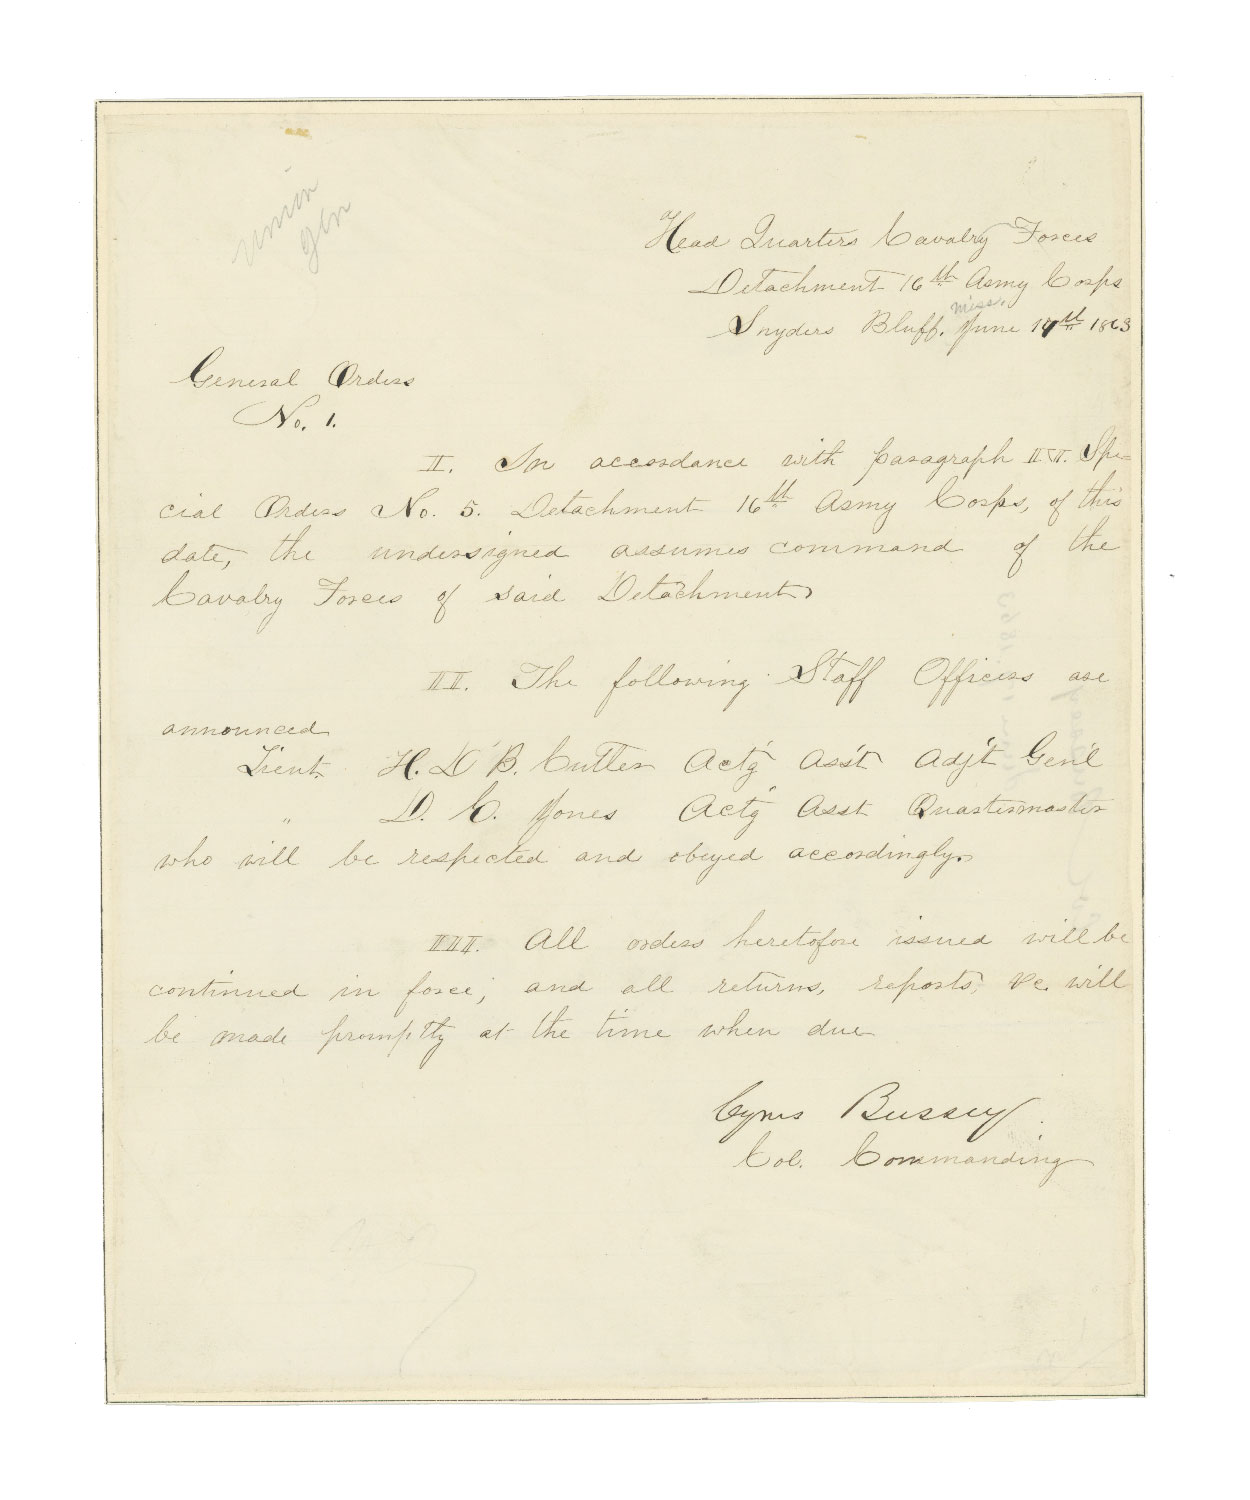 union
gen
Head Quarters Cavalry Forces
Detachment 16th Army Corps
Miss.
Snyders Bluff. June 17th 1863
General Orders
No. 1.
I. In accordance with paragraph Spe-
cial Orders No. 5. Detachment 16th Army Corps, of this
date, the undersigned assumes command of the
Cavalry Forces of said Detachment
II. The following Staff Officers are
announced
Lieut H. D B. Cutler Act'g Ass't Adj't Gen'l
" D. C. Jones Act'g Asst Quartermaster
who will be respected and obeyed accordingly.
III. All orders heretofore issued will be
continued in force; and all returns, reports, &c. will
be made promptly at the time when due
Cyrus Bussey
Col. Commanding